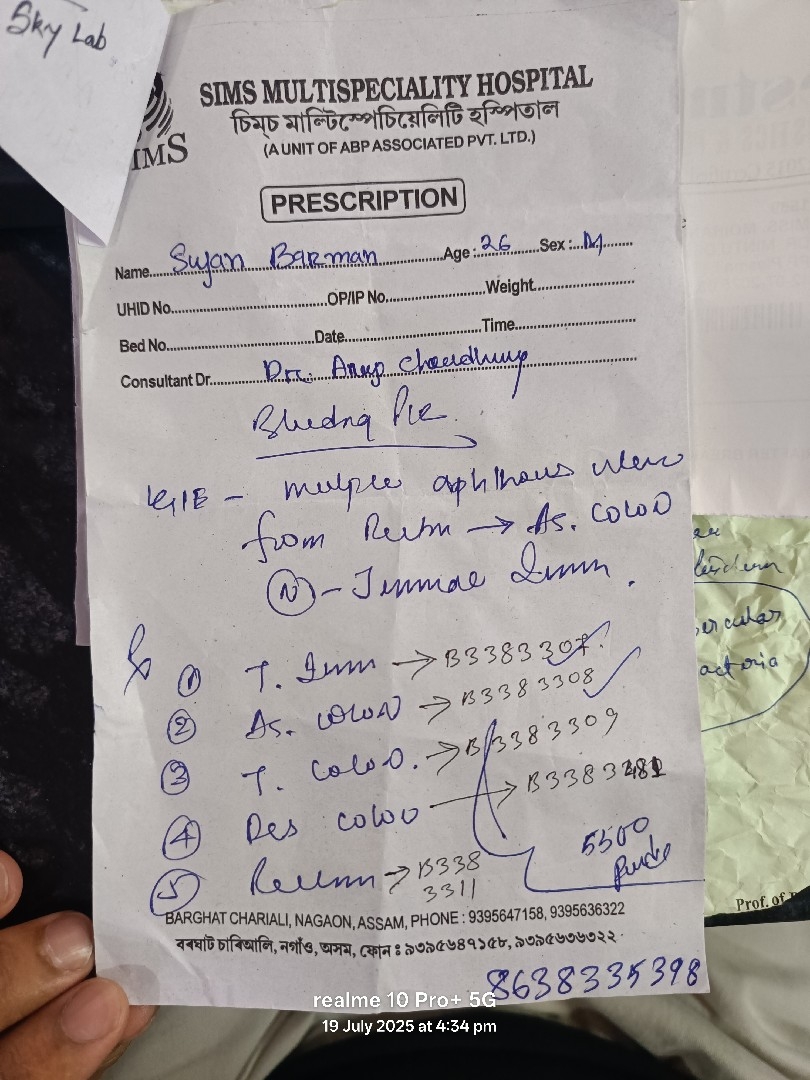 Sky Lab
SIMS
SIMS MULTISPECIALITY HOSPITAL
চিম্‌চ মাল্টিস্পেচিয়েলিটি হস্পিতাল
(A UNIT OF ABP ASSOCIATED PVT. LTD.)
PRESCRIPTION
Name Sujan Barman Age : 26 Sex : M
UHID No. OP/IP No. Weight
Bed No. Date Time
Consultant Dr. Dr. Anup Choudhury
Bleeding P/R
multple aphthous ulcers
from Rectm → As. COLON
(N) -
① T. → B3383307
② As. COLON → B3383308
③ T. COLON. → B3383309
④ Des COLON → B3383
⑤ Rectum → B338
3311
5500
BARGHAT CHARIALI, NAGAON, ASSAM, PHONE : 9395647158, 9395636322
বৰঘাট চাৰিআলি, নগাঁও, অসম, ফোন : ৯৩৯৫৬৪৭১৫৮, ৯৩৯৫৬৩৬৩২২
8638335398
Prof. of
realme 10 Pro+ 5G
19 July 2025 at 4:34 pm